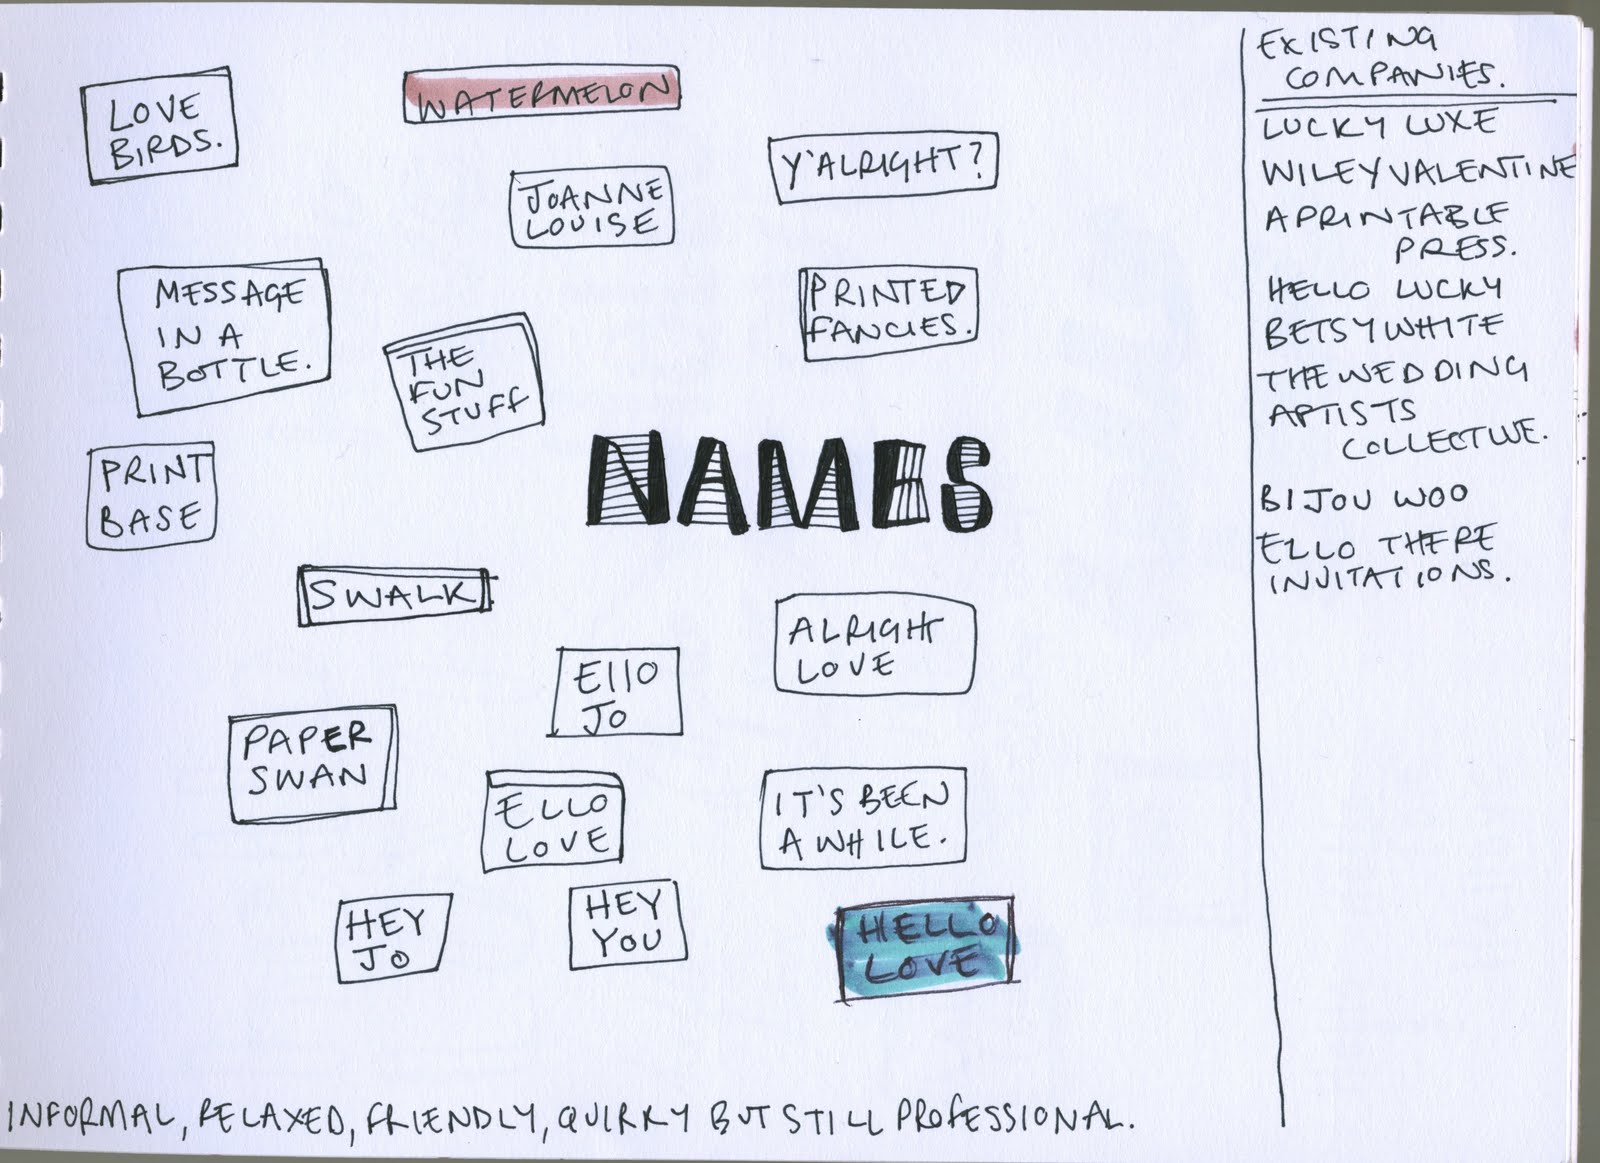 LOVE
BIRDS.
WATERMELON
JOANNE
LOUISE
Y'ALRIGHT?
MESSAGE
IN A
BOTTLE.
THE
FUN
STUFF
PRINTED
FANCIES.
PRINT
BASE
NAMES
SWALK
ALRIGHT
LOVE
Ello
JO
PAPER
SWAN
ELLO
LOVE
IT'S BEEN
A WHILE.
HEY
JO
HEY
YOU
HELLO
LOVE
INFORMAL, RELAXED, FRIENDLY, QUIRKY BUT STILL PROFESSIONAL.
EXISTING
COMPANIES.
LUCKY LUXE
WILEY VALENTINE
A PRINTABLE
PRESS.
HELLO LUCKY
BETSY WHITE
THE WEDDING
ARTISTS
COLLECTIVE.
BIJOU WOO
ELLO THERE
INVITATIONS.